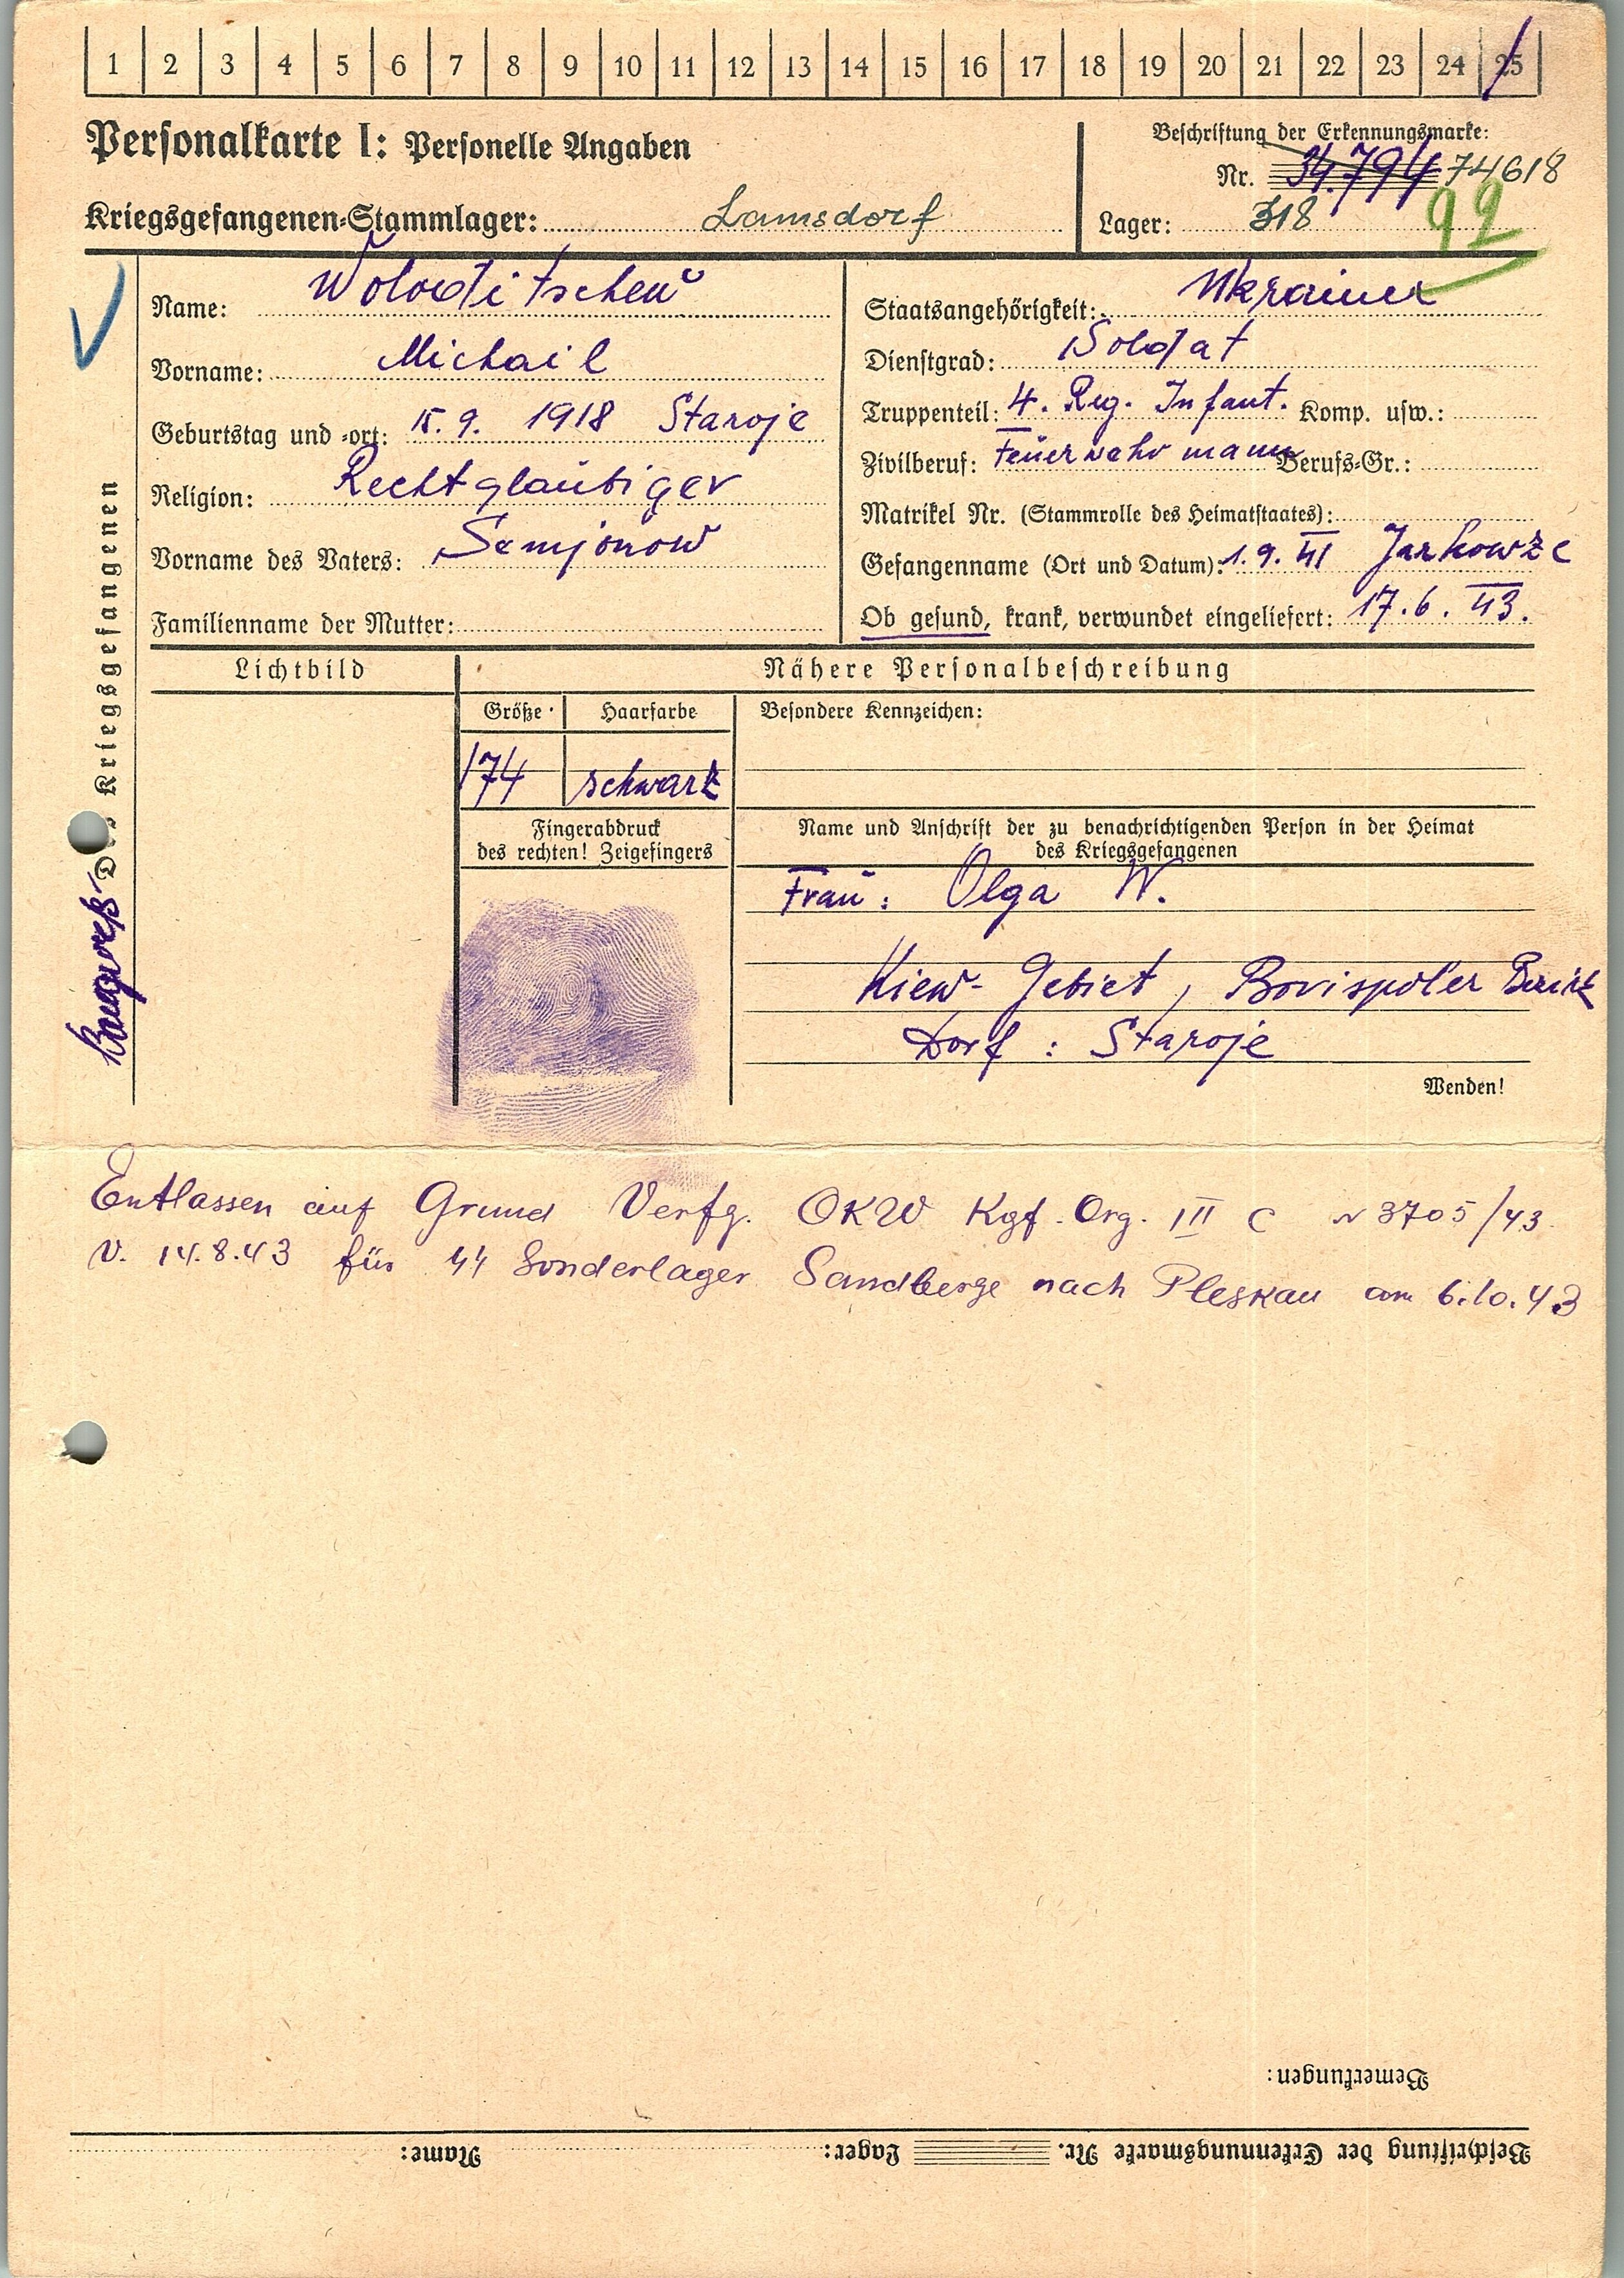 1 2 3 4 5 6 7 8 9 10 11 12 13 14 15 16 17 18 19 20 21 22 23 24 25
Personalkarte I: Personelle Angaben
Beschriftung der Erkennungsmarke:
Nr. 34.794 74618
Kriegsgefangenen-Stammlager: Lamsdorf
Lager: 318 92
Des Kriegsgefangenen
Name:
Vorname: Michail
Geburtstag und -ort: 15. 9. 1918 Staroje
Religion: Rechtgläubiger
Vorname des Vaters: Semjonow
Familienname der Mutter:
Staatsangehörigkeit: Ukrainer
Dienstgrad: Soldat
Truppenteil: 4. Reg. Infant. Komp. usw.:
Zivilberuf: Feuerwehrmann Berufs-Gr.:
Matrikel Nr. (Stammrolle des Heimatstaates):
Gefangenname (Ort und Datum): 1. 9. 41
Ob gesund, krank, verwundet eingeliefert: 17. 6. 43.
Lichtbild
Nähere Personalbeschreibung
Größe Haarfarbe Besondere Kennzeichen:
174 schwarz
Fingerabdruck
des rechten! Zeigefingers
Name und Anschrift der zu benachrichtigenden Person in der Heimat
des Kriegsgefangenen
Frau: Olga W.
Kiew-Gebiet, Borispoler Bezirk
Dorf: Staroje
Wenden!
Entlassen auf Grund Verfg. OKW Kgf. Org. III C N 3705/43
v. 14.8.43 für 44 Sonderlager Sandberge nach Pleskau am 6.10.43
Bemerkungen:
Beschriftung der Erkennungsmarke Nr. Lager: Name: